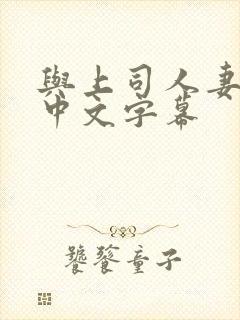 與上司人妻
中文字幕
饕餮童子